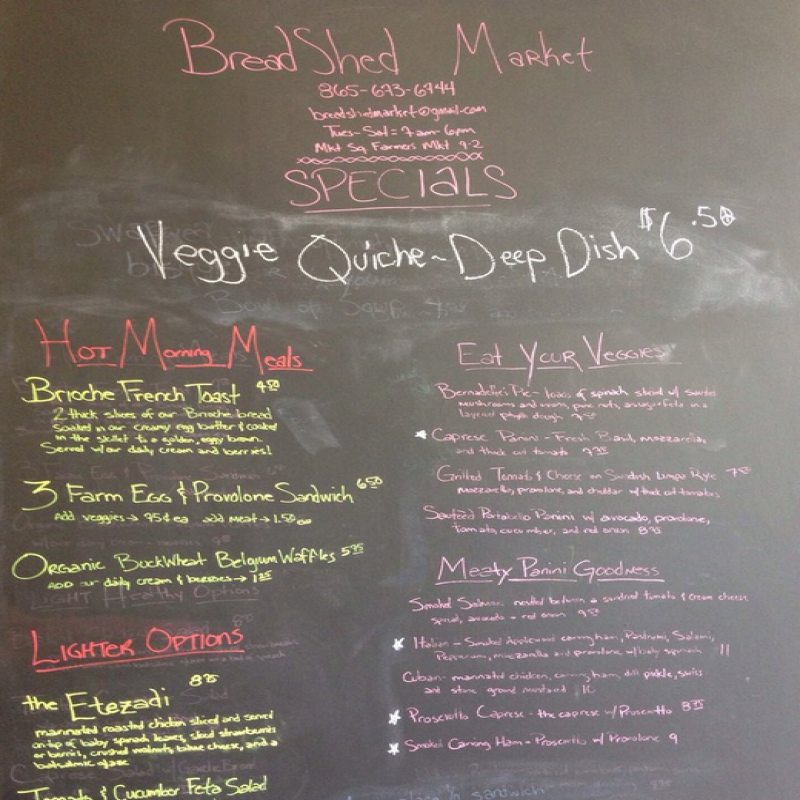 BreadShed Market
865-673-6744
breadshedmarket@gmail.com
Tues-Sat = 7am-6pm
Mkt Sq Farmers Mkt 9-2
SPECIALS
Veggie Quiche ~ Deep Dish $6.50
Hot Morning Meals
Brioche French Toast 4.50
2 thick slices of our Brioche bread
soaked in our creamy egg batter & cooked
in the skillet to a golden, eggy brown.
Served w/our daily cream and berries!
3 Farm Egg & Provolone Sandwich 6.50
Add veggies → 75¢ ea add meat → 1.50 ea
Organic BuckWheat Belgium Waffles 5.75
ADD our daily cream & berries →
Lighter Options
the Etezadi 8.75
marinated roasted chicken sliced and served
on top of baby spinach leaves, sliced strawberries
or berries, crushed walnuts, blue cheese, and a
balsamic glaze
Tomato & Cucumber Feta Salad
Eat Your Veggies
Bernadette's Pie - loads of spinach sliced w/
mushrooms and onion, pine nuts, in a
layered phyllo dough
Caprese Panini - Fresh Basil, mozzarella,
and thick cut tomato
Grilled Tomato & Cheese on Swedish Limpa Rye
mozzarella, provolone, and cheddar w/ thick cut tomatoes
Sautéed Portabello Panini w/ avocado, provolone,
tomato, cucumber, and red onion
Meaty Panini Goodness
Smoked Salmon: nestled between a sundried tomato & cream cheese
spread, avocado + red onion
Italian - Smoked Applewood carving ham, Pastrami, Salami,
Pepperoni, mozzarella and provolone w/ baby spinach 11
Cuban - marinated chicken, carving ham, dill pickle, swiss
and stone ground mustard 10
Proscuitto Caprese - the caprese w/ Proscuitto 8.75
Smoked Carving Ham - Proscuitto w/ Provolone 9